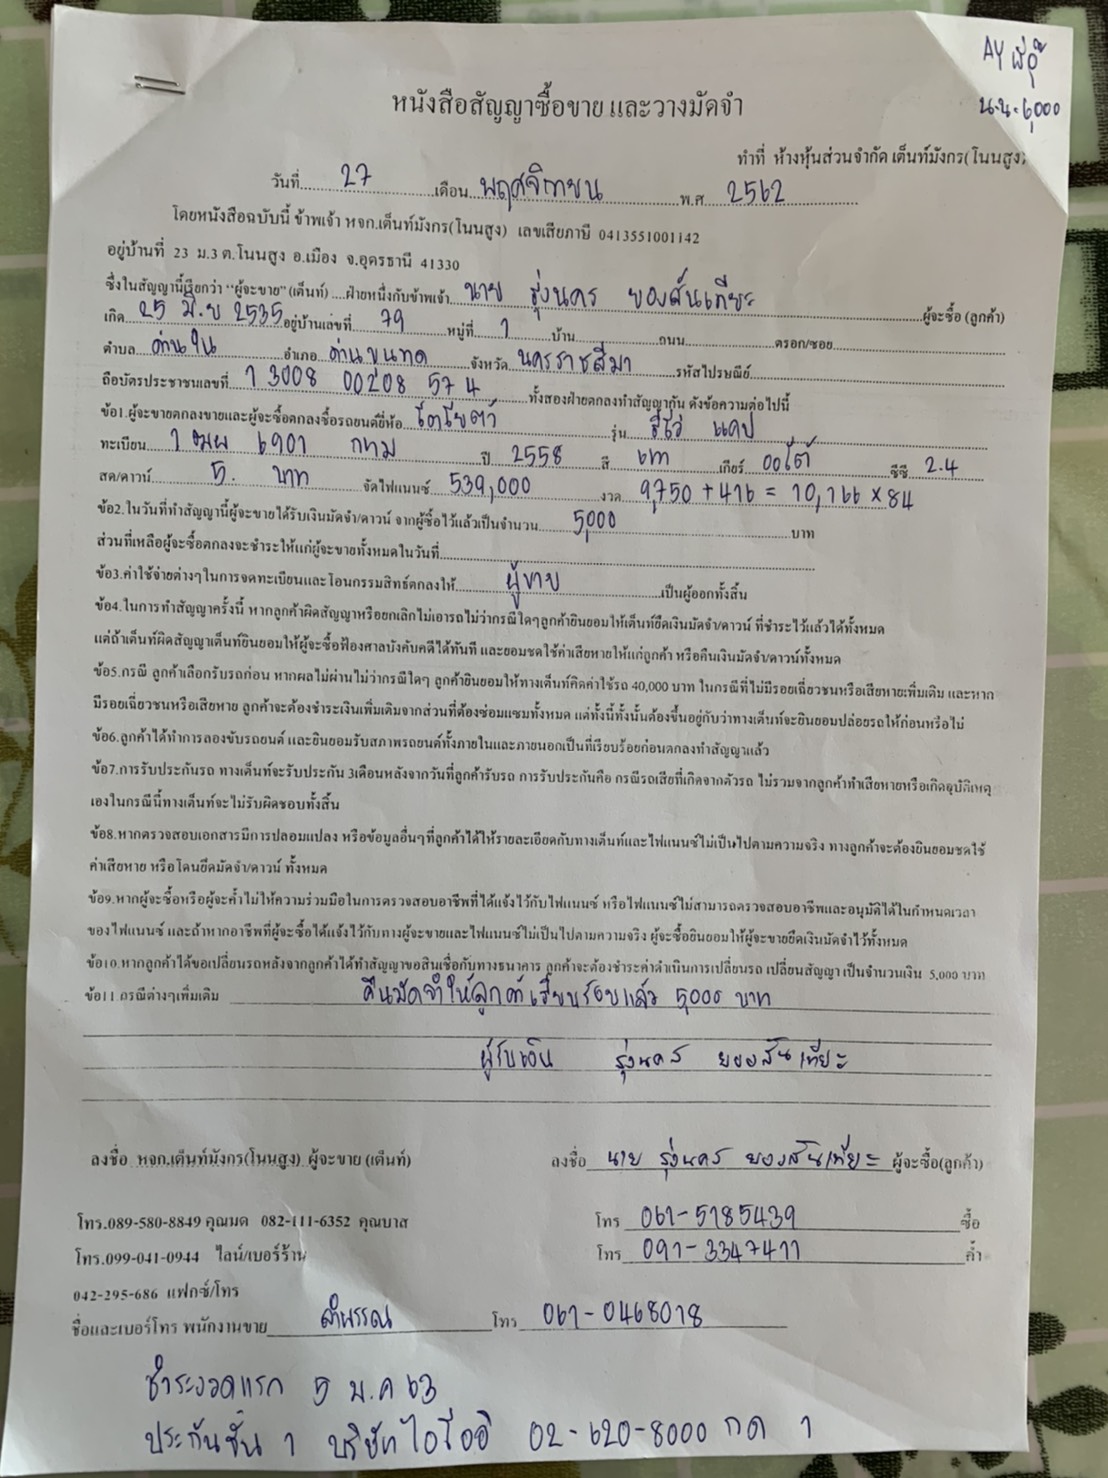 AY
น.น. 6,000
หนังสือสัญญาซื้อขาย และวางมัดจำ
ทำที่ ห้างหุ้นส่วนจำกัด เต็นท์มังกร(โนนสูง)
วันที่ 27 เดือน พฤศจิกายน พ.ศ 2562
โดยหนังสือฉบับนี้ ข้าพเจ้า หจก.เต็นท์มังกร(โนนสูง) เลขเสียภาษี 0413551001142
อยู่บ้านที่ 23 ม.3 ต.โนนสูง อ.เมือง จ.อุดรธานี 41330
ซึ่งในสัญญานี้เรียกว่า "ผู้จะขาย" (เต็นท์) ....ฝ่ายหนึ่งกับข้าพเจ้า นาย รุ่งนคร ยองสันเทียะ ผู้จะซื้อ (ลูกค้า)
เกิด 25 มิ.ย 2535 อยู่บ้านเลขที่ 79 หมู่ที่ 1 บ้าน ถนน ตรอก/ซอย
ตำบล ด่านใน อำเภอ ด่านขุนทด จังหวัด นครราชสีมา รหัสไปรษณีย์
ถือบัตรประชาชนเลขที่ 1 3008 00208 57 4 ทั้งสองฝ่ายตกลงทำสัญญากัน ดังข้อความต่อไปนี้
ข้อ1.ผู้จะขายตกลงขายและผู้จะซื้อตกลงซื้อรถยนต์ยี่ห้อ โตโยต้า รุ่น รีโว่ แคป
ทะเบียน 1 ฒผ 6901 กทม ปี 2558 สี เทา เกียร์ ออโต้ ซีซี 2.4
สด/ดาวน์ 5. บาท จัดไฟแนนซ์ 539,000 งวด 9,750 + 416 = 10,166 × 84
ข้อ2.ในวันที่ทำสัญญานี้ผู้จะขายได้รับเงินมัดจำ/ดาวน์ จากผู้ซื้อไว้แล้วเป็นจำนวน 5,000 บาท
ส่วนที่เหลือผู้จะซื้อตกลงจะชำระให้แก่ผู้จะขายทั้งหมดในวันที่
ข้อ3.ค่าใช้จ่ายต่างๆในการจดทะเบียนและโอนกรรมสิทธ์ตกลงให้ ผู้ขาย เป็นผู้ออกทั้งสิ้น
ข้อ4.ในการทำสัญญาครั้งนี้ หากลูกค้าผิดสัญญาหรือยกเลิกไม่เอารถไม่ว่ากรณีใดๆลูกค้ายินยอมให้เต็นท์ยึดเงินมัดจำ/ดาวน์ ที่ชำระไว้แล้วได้ทั้งหมด
แต่ถ้าเต็นท์ผิดสัญญาเต็นท์ยินยอมให้ผู้จะซื้อฟ้องศาลบังคับคดีได้ทันที และยอมชดใช้ค่าเสียหายให้แก่ลูกค้า หรือคืนเงินมัดจำ/ดาวน์ทั้งหมด
ข้อ5.กรณี ลูกค้าเลือกรับรถก่อน หากผลไม่ผ่านไม่ว่ากรณีใดๆ ลูกค้ายินยอมให้ทางเต็นท์คิดค่าใช้รถ 40,000 บาท ในกรณีที่ไม่มีรอยเฉี่ยวชนหรือเสียหายะเพิ่มเติม และหาก
มีรอยเฉี่ยวชนหรือเสียหาย ลูกค้าจะต้องชำระเงินเพิ่มเติมจากส่วนที่ต้องซ่อมแซมทั้งหมด แต่ทั้งนี้ทั้งนั้นต้องขึ้นอยู่กับว่าทางเต็นท์จะยินยอมปล่อยรถให้ก่อนหรือไม่
ข้อ6.ลูกค้าได้ทำการลองขับรถยนต์ และยินยอมรับสภาพรถยนต์ทั้งภายในและภายนอกเป็นที่เรียบร้อยก่อนตกลงทำสัญญาแล้ว
ข้อ7.การรับประกันรถ ทางเต็นท์จะรับประกัน 3เดือนหลังจากวันที่ลูกค้ารับรถ การรับประกันคือ กรณีรถเสียที่เกิดจากตัวรถ ไม่รวมจากลูกค้าทำเสียหายหรือเกิดอุบัติเหตุ
เองในกรณีนี้ทางเต็นท์จะไม่รับผิดชอบทั้งสิ้น
ข้อ8.หากตรวจสอบเอกสารมีการปลอมแปลง หรือข้อมูลอื่นๆที่ลูกค้าได้ให้รายละเอียดกับทางเต็นท์และไฟแนนซ์ไม่เป็นไปตามความจริง ทางลูกค้าจะต้องยินยอมชดใช้
ค่าเสียหาย หรือโดนยึดมัดจำ/ดาวน์ ทั้งหมด
ข้อ9.หากผู้จะซื้อหรือผู้จะค้ำไม่ให้ความร่วมมือในการตรวจสอบอาชีพที่ได้แจ้งไว้กับไฟแนนซ์ หรือไฟแนนซ์ไม่สามารถตรวจสอบอาชีพและอนุมัติได้ในกำหนดเวลา
ของไฟแนนซ์ และถ้าหากอาชีพที่ผู้จะซื้อได้แจ้งไว้กับทางผู้จะขายและไฟแนนซ์ไม่เป็นไปตามความจริง ผู้จะซื้อยินยอมให้ผู้จะขายยึดเงินมัดจำไว้ทั้งหมด
ข้อ10.หากลูกค้าได้ขอเปลี่ยนรถหลังจากลูกค้าได้ทำสัญญาขอสินเชื่อกับทางธนาคาร ลูกค้าจะต้องชำระค่าดำเนินการเปลี่ยนรถ เปลี่ยนสัญญา เป็นจำนวนเงิน 5,000 บาท
ข้อ11 กรณีต่างๆเพิ่มเติม คืนมัดจำให้ลูกค้าเรียบร้อยแล้ว 5,000 บาท
ผู้รับเงิน รุ่งนคร ยองสันเทียะ
ลงชื่อ หจก.เต็นท์มังกร(โนนสูง) ผู้จะขาย (เต็นท์) ลงชื่อ นาย รุ่งนคร ยองสันเทียะ ผู้จะซื้อ(ลูกค้า)
โทร.089-580-8849 คุณมด 082-111-6352 คุณบาส โทร 061-5185439 ซื้อ
โทร.099-041-0944 ไลน์/เบอร์ร้าน โทร 091-3347411 ค้ำ
042-295-686 แฟกซ์/โทร
ชื่อและเบอร์โทร พนักงานขาย ลำพรรณ โทร 061-0468018
ชำระงวดแรก 5 ม.ค 63
ประกันชั้น 1 บริษัทไอโออิ 02-620-8000 กด 1